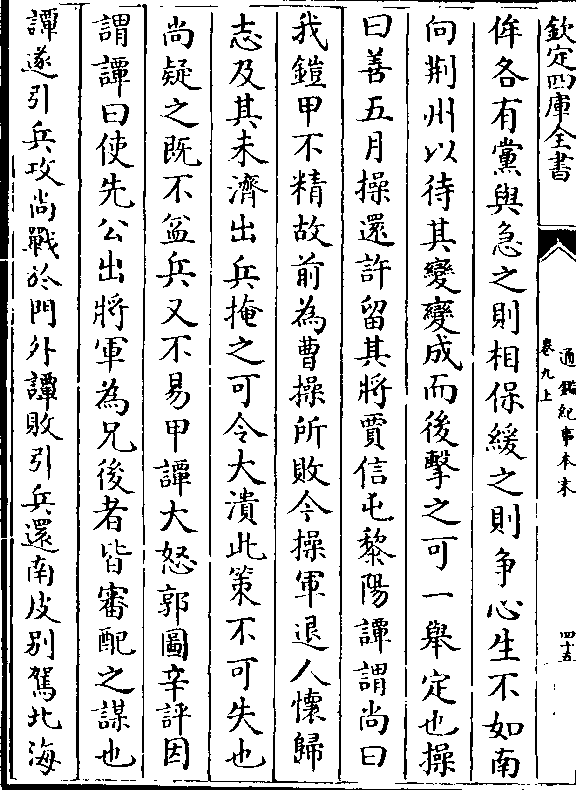 欽定四庫全書
通鑑紀事本末
卷九上
四十五
侔各有黨與急之則相保緩之則争心生不如南
向荆州以待其變變成而後擊之可一舉定也操
曰善五月操還許留其將賈信屯黎陽譚謂尚曰
我鎧甲不精故前為曹操所敗今操軍退人懷歸
志及其未濟出兵掩之可令大潰此策不可失也
尚疑之既不益兵又不易甲譚大怒郭圖辛評因
謂譚曰使先公出將軍為兄後者皆審配之謀也
譚遂引兵攻尚戰於門外譚敗引兵還南皮别駕北海